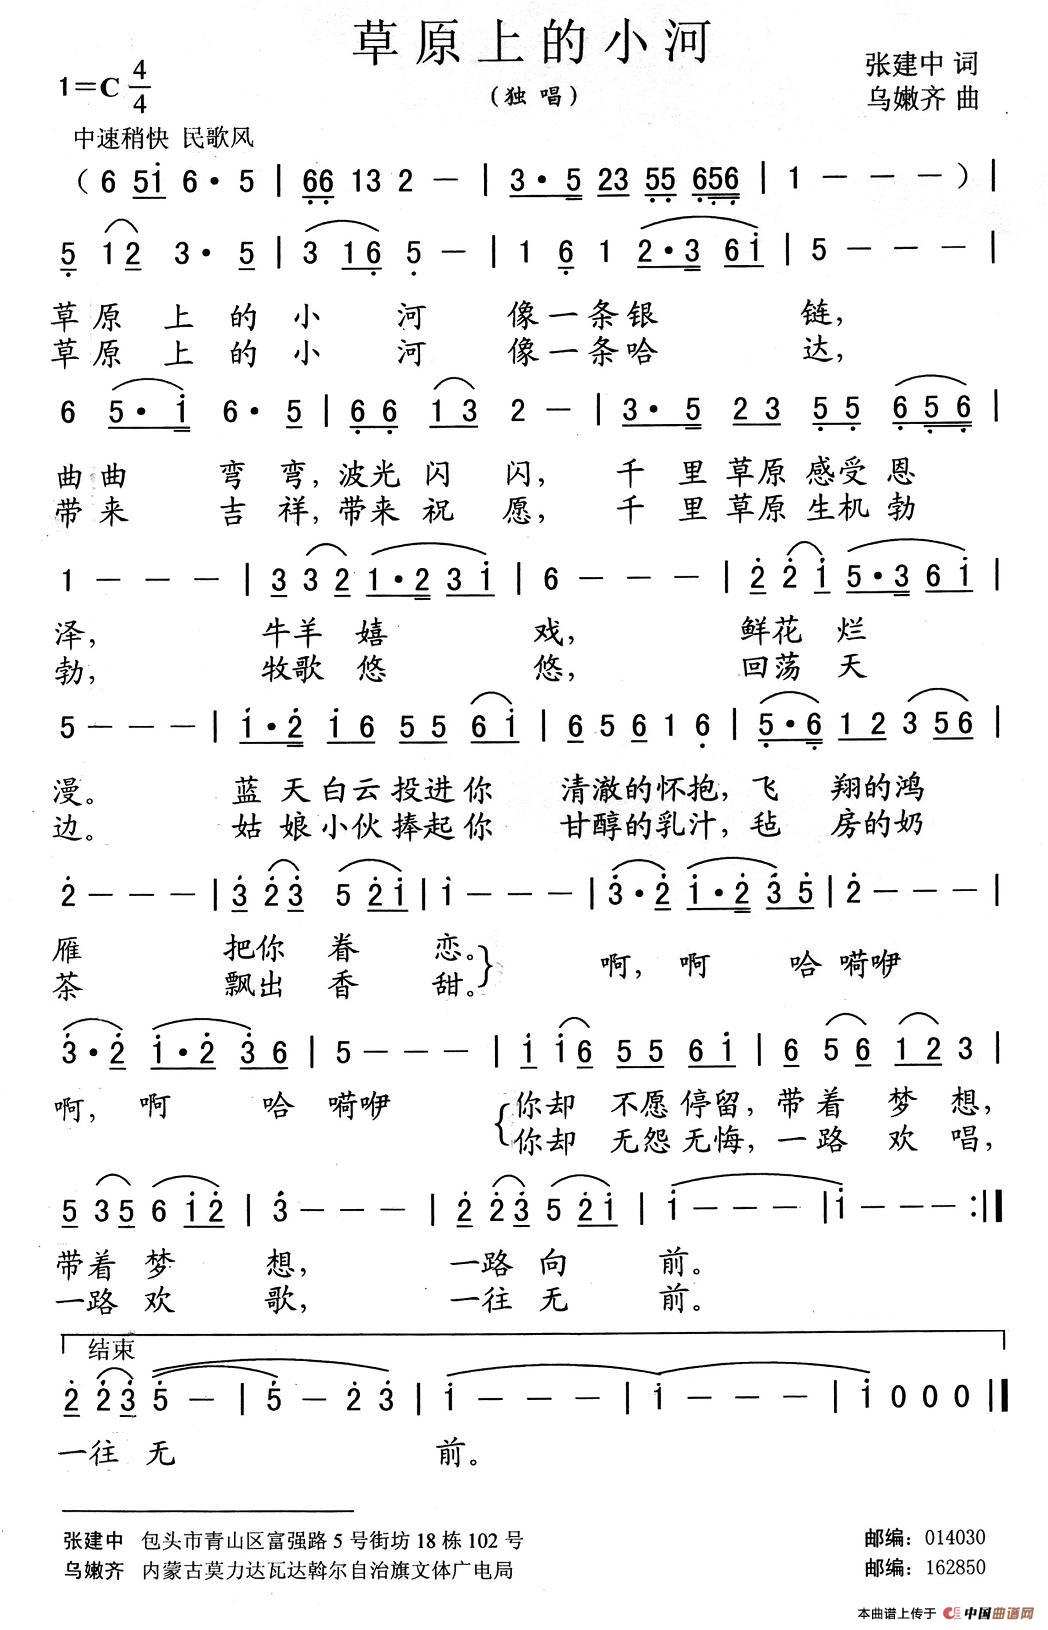 草原上的小河
(独唱)
1=C 4/4
张建中 词
乌嫩齐 曲
中速稍快 民歌风
(6 51 6· 5 | 66 13 2 － | 3· 5 23 55 656 | 1 － － － ) |
5 12 3· 5 | 3 16 5 － | 1 6 1 2·3 61 | 5 － － － |
草原 上 的 小 河 像一条银 链,
草原 上 的 小 河 像一条哈 达,
6 5· 1 6· 5 | 66 13 2 － | 3· 5 23 55 656 |
曲曲 弯 弯, 波光 闪 闪, 千 里 草原 感受 恩
带来 吉 祥, 带来 祝 愿, 千 里 草原 生机 勃
1 － － － | 3 3 2 1·2 3 1 | 6 － － － | 2 2 1 5·3 6 1 |
泽, 牛羊 嬉 戏, 鲜花 烂
勃, 牧歌 悠 悠, 回荡 天
5 － － － | 1·2 16 55 61 | 6 5 6 1 6 | 5·6 12 3 56 |
漫。 蓝 天 白云 投进 你 清澈的怀抱, 飞 翔的鸿
边。 姑 娘 小伙 捧起 你 甘醇的乳汁, 毡 房的奶
2 － － － | 3 2 3 5 21 | 1 － － － | 3·2 1·2 35 | 2 － － － |
雁 把你 眷 恋。 啊, 啊 哈 嗬咿
茶 飘出 香 甜。
3·2 1·2 36 | 5 － － － | 1 1 6 55 61 | 6 5 6 12 3 |
啊, 啊 哈 嗬咿 你却 不愿 停留, 带着 梦 想,
你却 无怨 无悔, 一路 欢 唱,
5 3 5 6 12 | 3 － － － | 2 2 3 5 21 | 1 － － － | 1 － － － :‖
带着 梦 想, 一路 向 前。
一路 欢 歌, 一往 无 前。
结束
2 2 3 5 － | 5 － 2 3 | 1 － － － | 1 － － － | 1 0 0 0 ‖
一往 无 前。
张建中 包头市青山区富强路5号街坊18栋102号 邮编: 014030
乌嫩齐 内蒙古莫力达瓦达斡尔自治旗文体广电局 邮编: 162850
本曲谱上传于 中国曲谱网